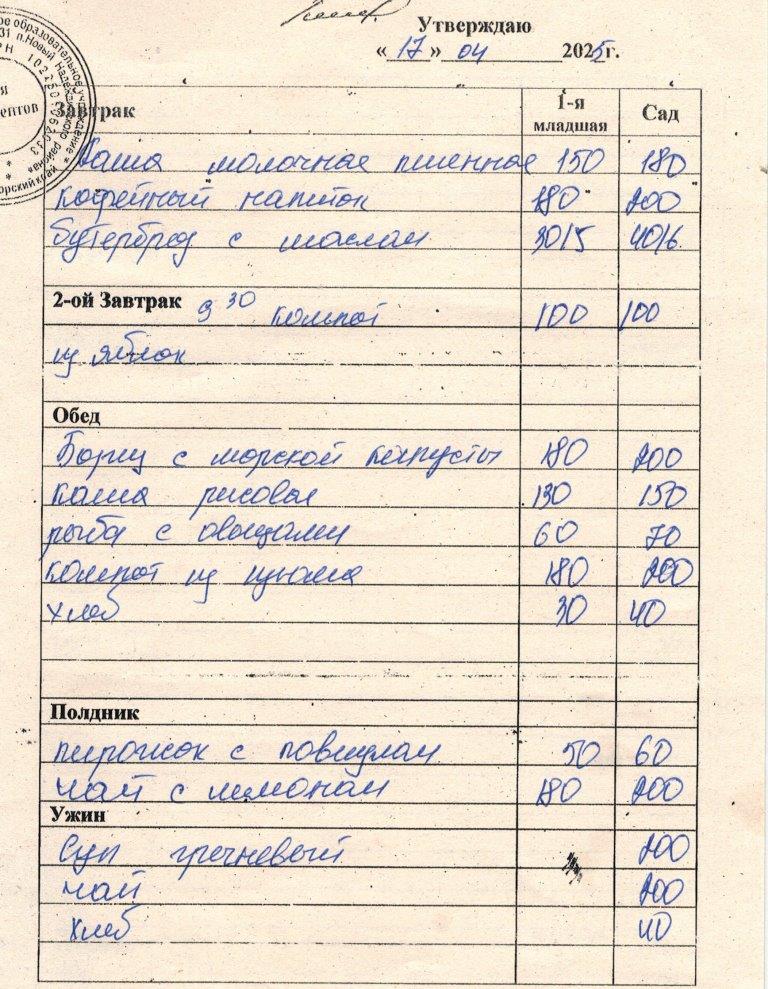 Утверждаю
«17» 04 2025г.
Завтрак 1-я младшая Сад
Каша молочная пшенная 150 180
Кофейный напиток 180 200
Бутерброд с маслом 30/5 40/6
2-ой Завтрак 9 30 компот 100 100
из яблок
Обед
Борщ с морской капусты 180 200
каша рисовая 130 150
рыба с овощами 60 70
компот из изюма 180 200
хлеб 30 40
Полдник
пирожок с повидлом 50 60
чай с лимоном 180 200
Ужин
Суп гречневый 200
чай 200
хлеб 40